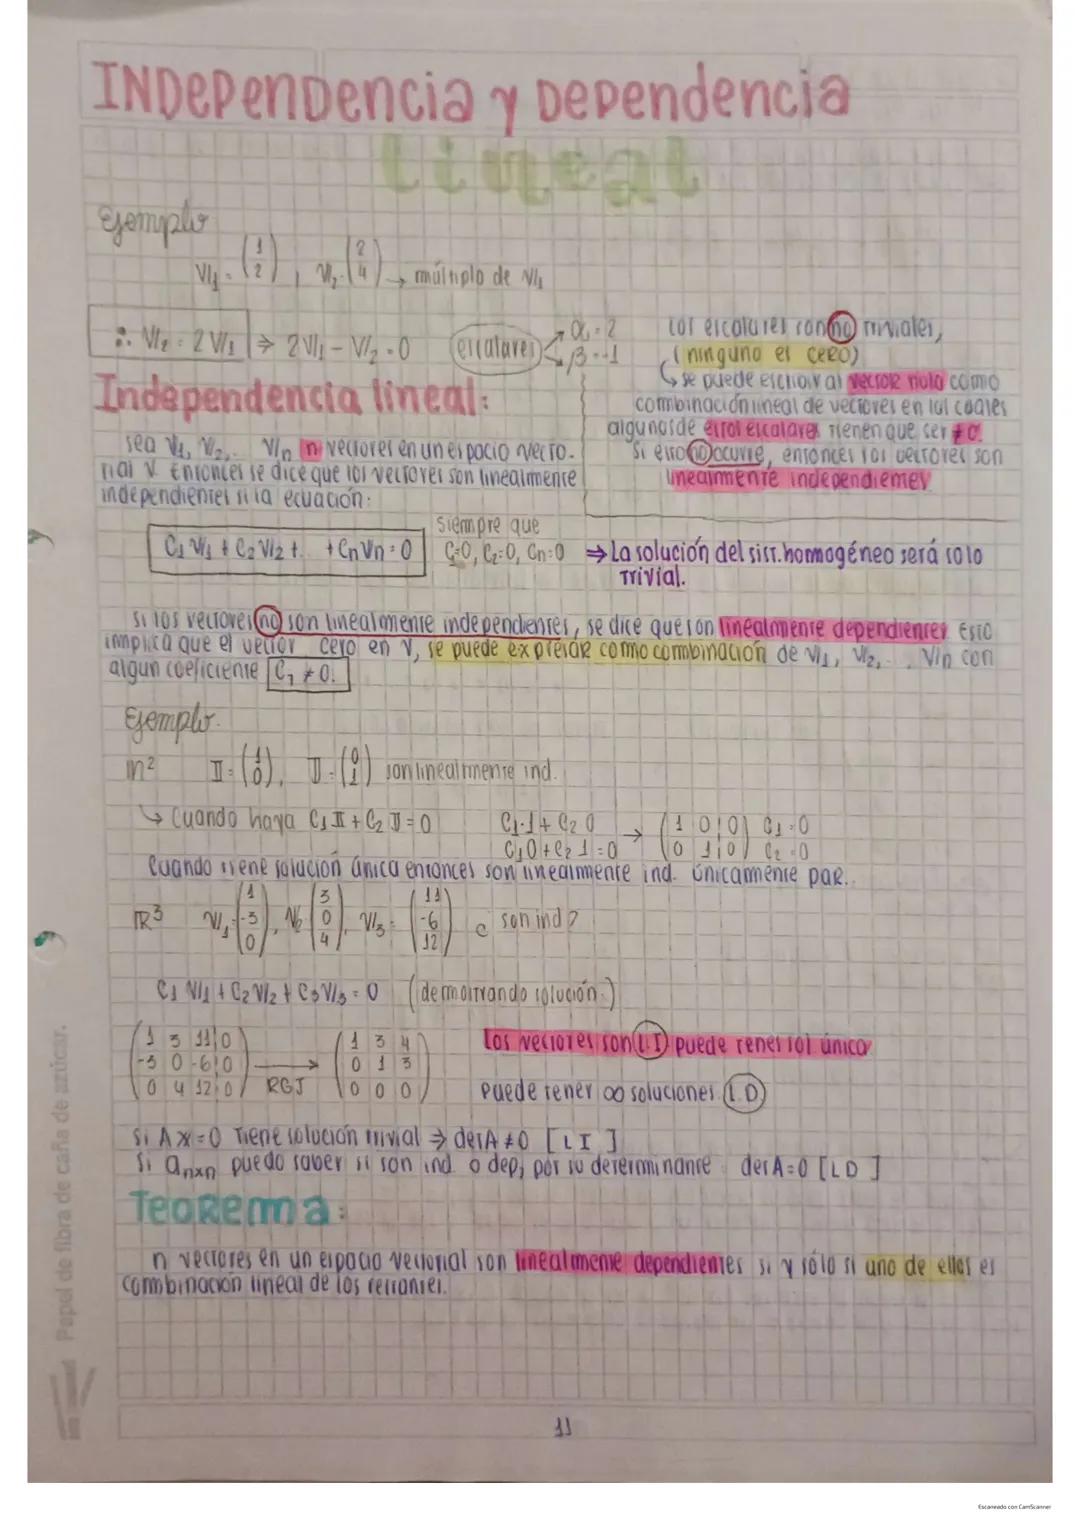 INDEPENDENCIA y DEPENDENCIA
Lineal
Ejemplo
V1 = (1 2), V2 = (2 4) → múltiplo de V1
∴ V2 = 2V1 ⇒ 2V1 - V2 = 0 escalares α = 2 β = -1
Los escalares son no triviales,
(ninguno es CERO)
↳ se puede escribir al vector nulo como
combinación lineal de vectores en los cuales
algunos de estos escalares tienen que ser ≠ 0.
Si esto no ocurre, entonces los vectores son
linealmente independientes
Independencia lineal:
Sea V1, V2,.. Vn n vectores en un espacio vecto-
rial V. Entonces se dice que los vectores son linealmente
independientes si la ecuación:
C1V1 + C2V2 + .. + CnVn = 0
Siempre que
C=0, C2=0, Cn=0 ⇒ La solución del sist. homogéneo será solo
trivial.
Si los vectores no son linealmente independientes, se dice que son linealmente dependientes. Esto
implica que el vector cero en V, se puede expresar como combinación de V1, V2, .. , Vn con
algun coeficiente C1 ≠ 0.
Ejemplo.
m² I = (1 0), J = (0 1) son linealmente ind.
↳ Cuando haya C1 I + C2 J = 0
C1·1 + C2 0
C1 0 + C2 1 = 0
→ (1 0 | 0) C1 = 0
(0 1 | 0) C2 = 0
Cuando tiene solución única entonces son linealmente ind. únicamente par..
R³ V1 = (1 -3 0), V2 = (3 0 4), V3 = (11 -6 12) ¿ son ind?
C1 V1 + C2 V2 + C3 V3 = 0 (demostrando solución.)
1 3 11 | 0
-3 0 -6 | 0
0 4 12 | 0
→ RGJ
1 3 4
0 1 3
0 0 0
Los vectores son L.I puede tener sol única
Puede tener ∞ soluciones L.D
Si Ax = 0 Tiene solución trivial ⇒ det A ≠ 0 [LI]
Si anxn puedo saber si son ind. o dep, por su determinante det A = 0 [LD]
Teorema:
n vectores en un espacio vectorial son linealmente dependientes si y sólo si uno de ellos es
combinación lineal de los restantes.
11
Papel de fibra de caña de azúcar.
Escaneado con CamScanner